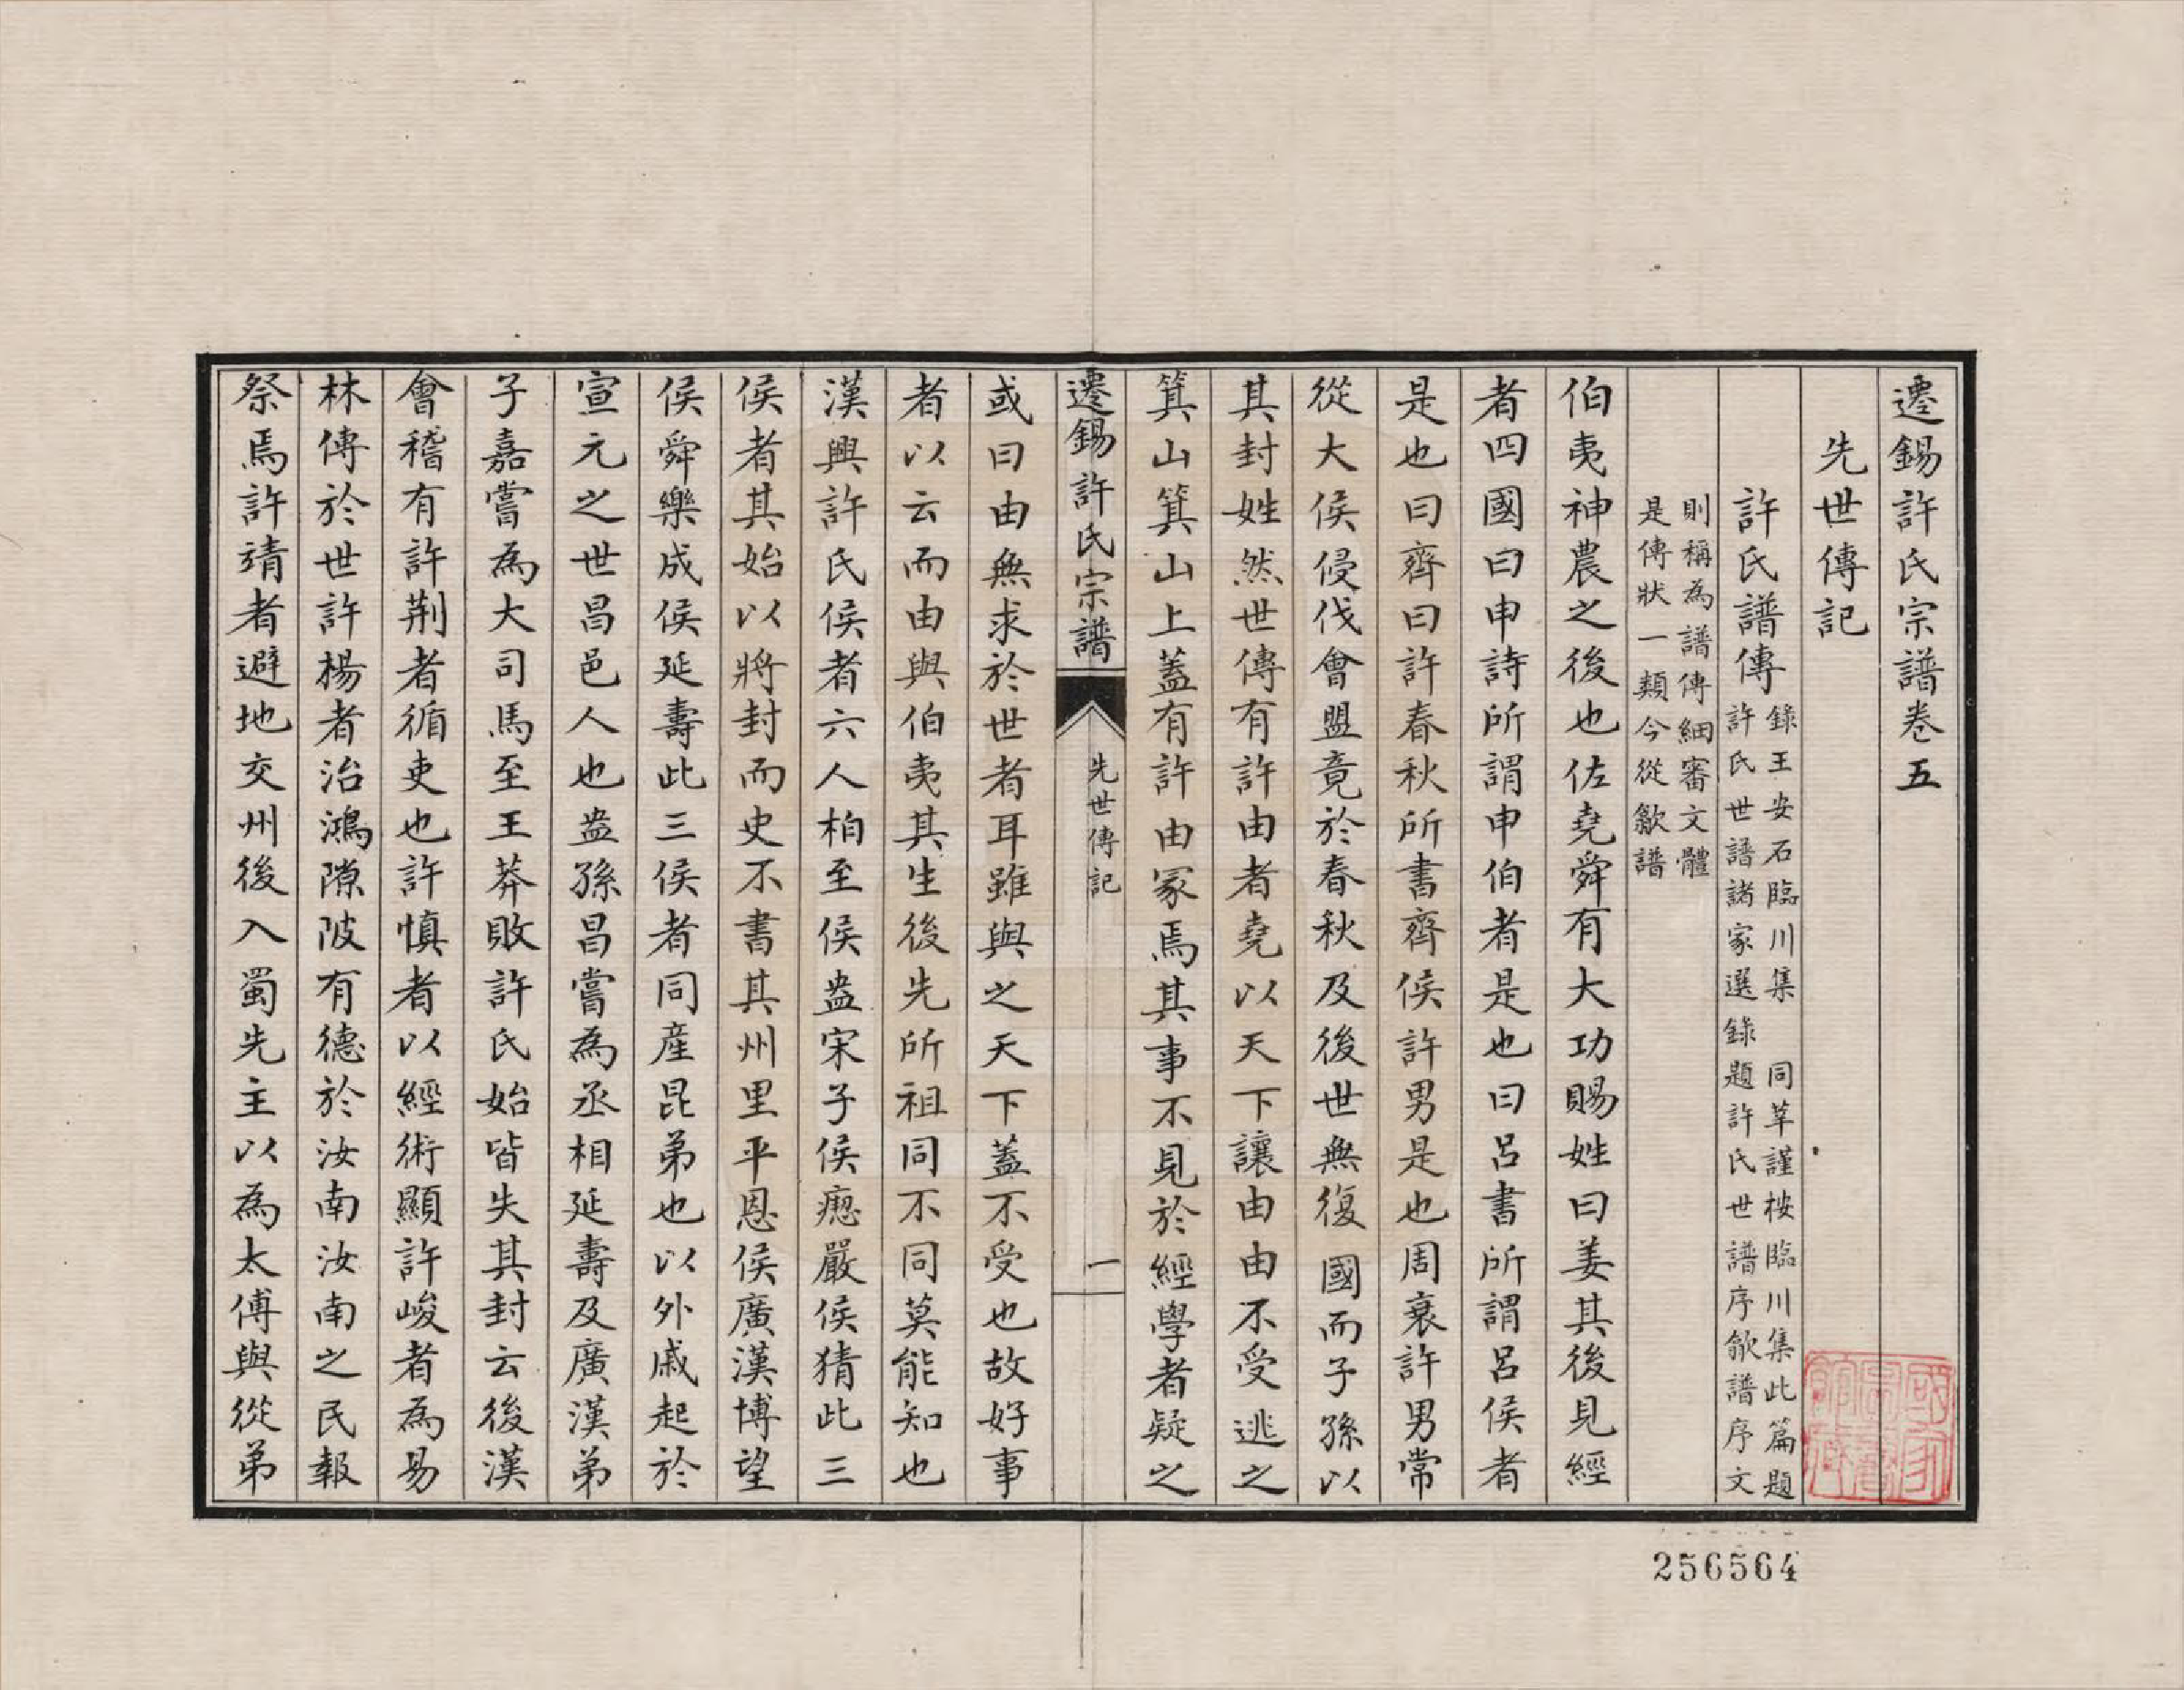 遷錫許氏宗譜卷五
先世傳記
許氏譜傳
錄王安石臨川集 同莘謹桉臨川集此篇題
許氏世譜諸家選錄題許氏世譜序歙譜序文
則稱為譜傳細審文體
是傳狀一類今從歙譜
伯夷神農之後也佐堯舜有大功賜姓曰姜其後見經
者四國曰申詩所謂申伯者是也曰呂書所謂呂侯者
是也曰齊曰許春秋所書齊侯許男是也周衰許男常
從大侯侵伐會盟竟於春秋及後世無復國而子孫以
其封姓然世傳有許由者堯以天下讓由由不受逃之
箕山箕山上蓋有許由冢焉其事不見於經學者疑之
遷錫許氏宗譜
先世傳記
一
或曰由無求於世者耳雖與之天下蓋不受也故好事
者以云而由與伯夷其生後先所祖同不同莫能知也
漢興許氏侯者六人柏至侯盎宋子侯瘛嚴侯猜此三
侯者其始以將封而史不書其州里平恩侯廣漢博望
侯舜樂成侯延壽此三侯者同產昆弟也以外戚起於
宣元之世昌邑人也盎孫昌嘗為丞相延壽及廣漢弟
子嘉嘗為大司馬至王莽敗許氏始皆失其封云後漢
會稽有許荆者循吏也許慎者以經術顯許峻者為易
林傳於世許楊者治鴻隙陂有德於汝南汝南之民報
祭焉許靖者避地交州後入蜀先主以為太傅與從弟
國家圖書館藏
256564